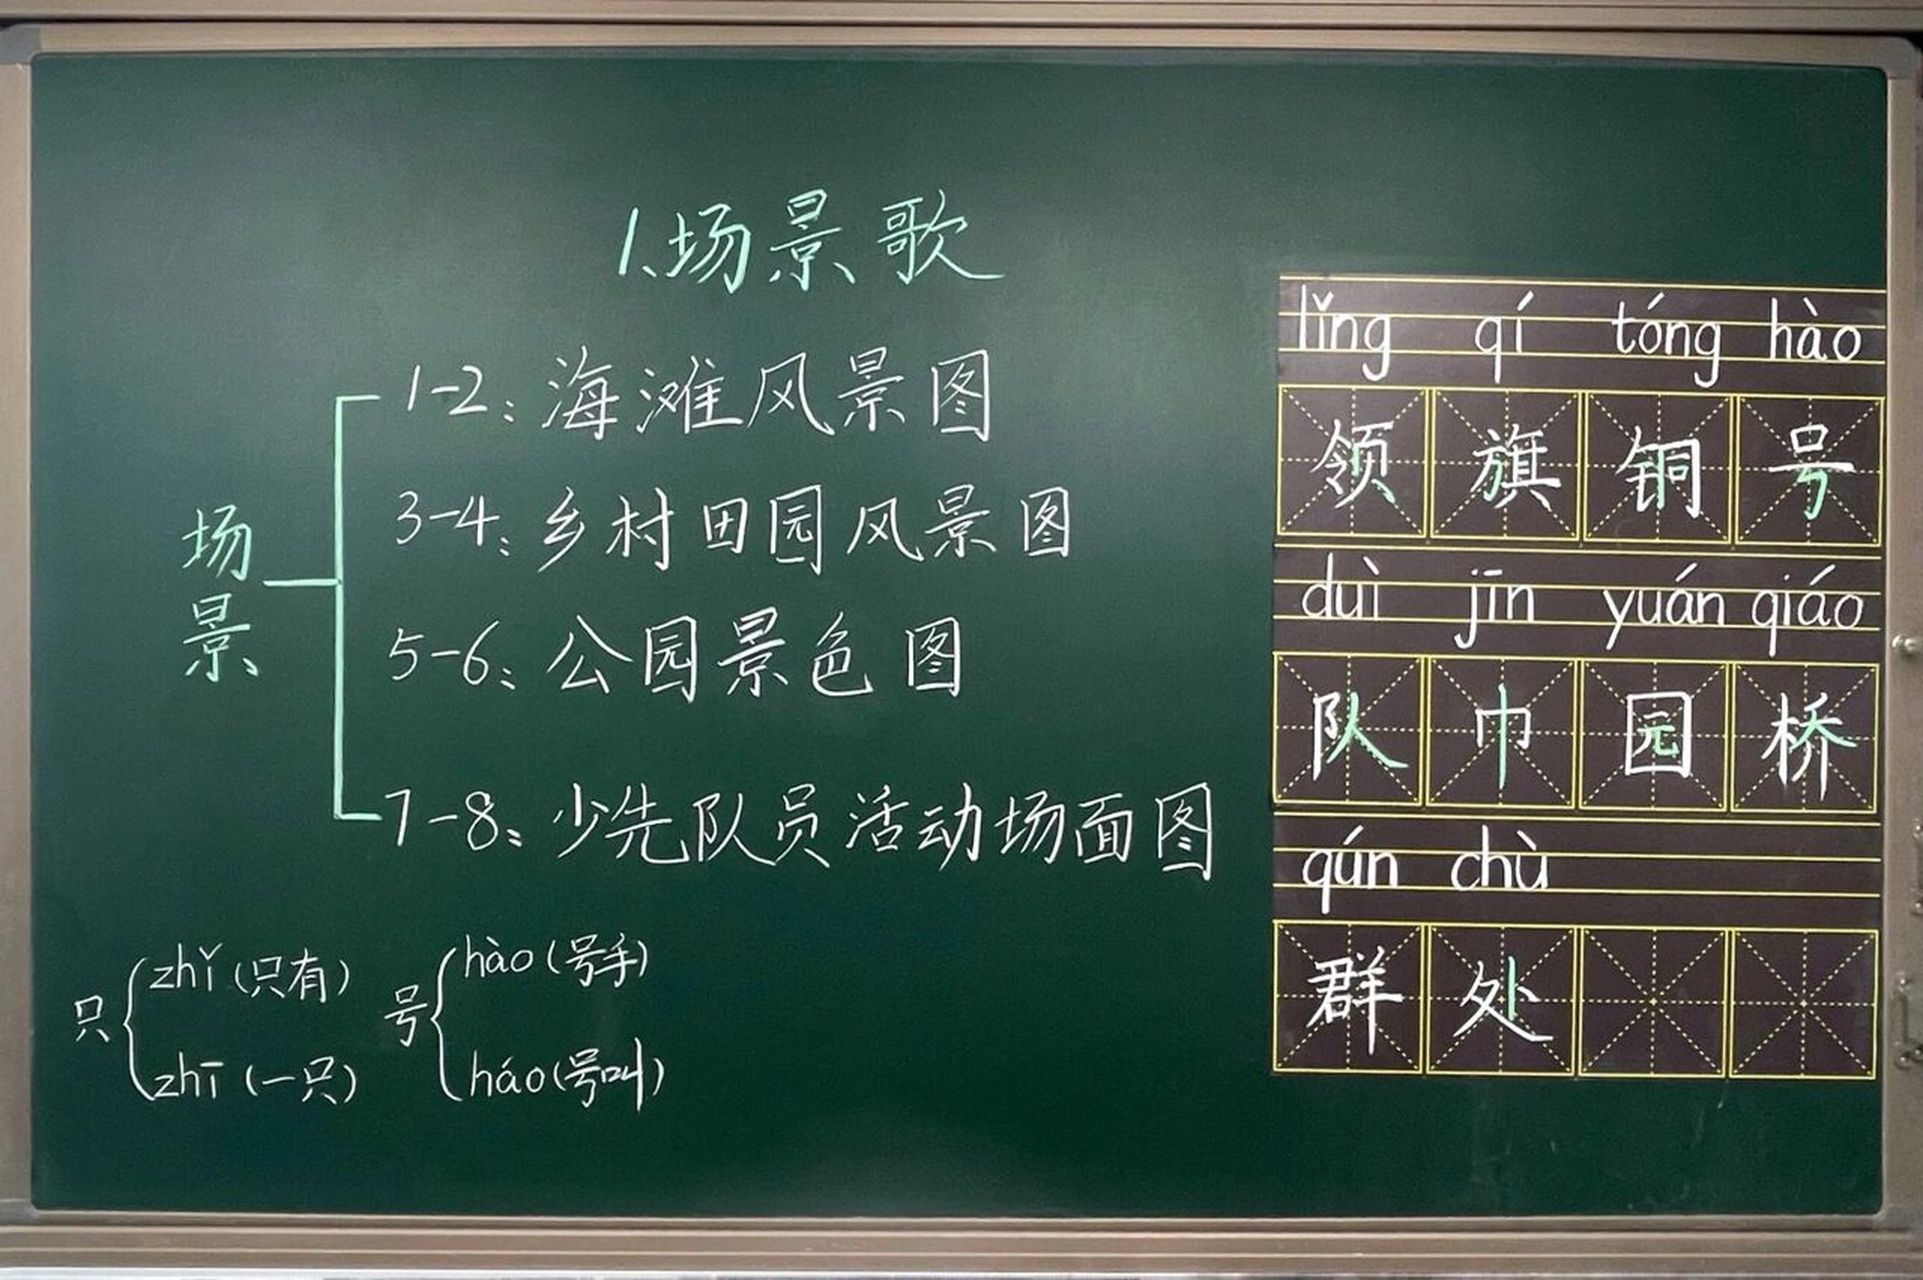 1.场景歌
场景
1-2:海滩风景图
3-4:乡村田园风景图
5-6:公园景色图
7-8:少先队员活动场面图
只 zhǐ(只有)
zhī(一只)
号 hào(号手)
háo(号叫)
lǐng qí tóng hào
领 旗 铜 号
duì jīn yuán qiáo
队 巾 园 桥
qún chù
群 处